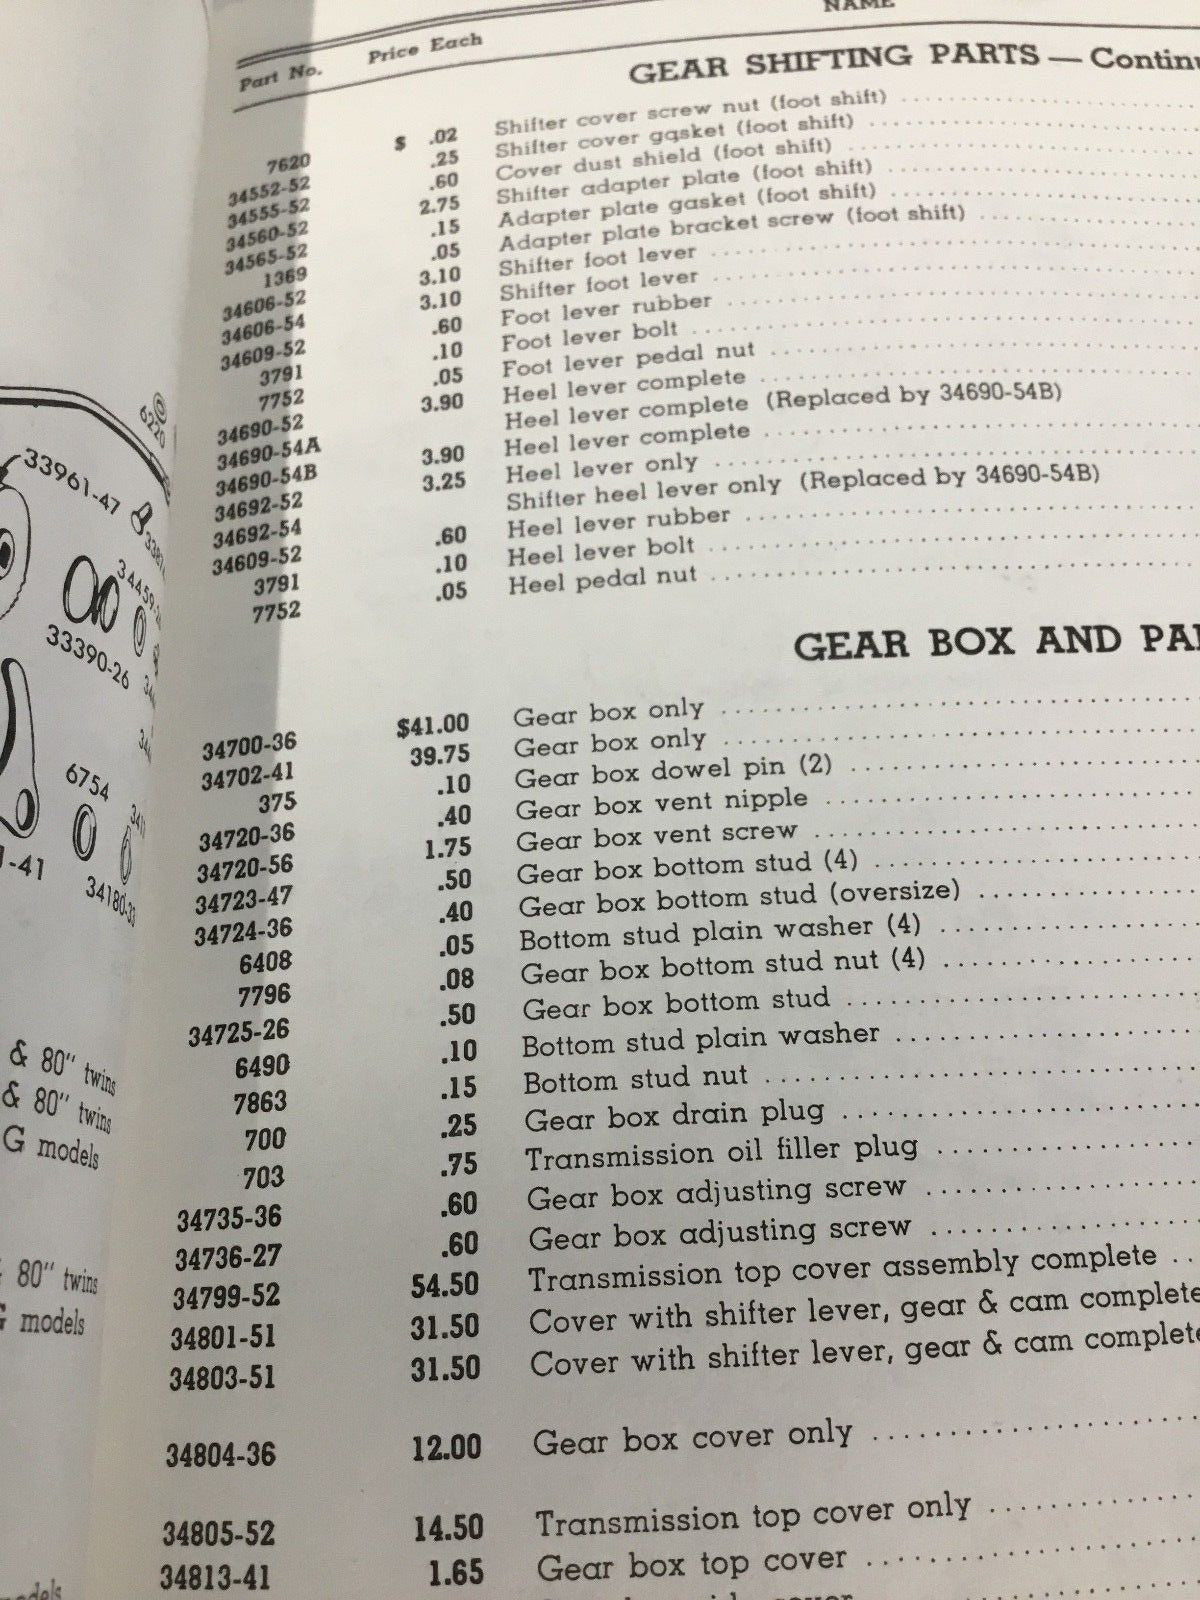 6220
33961-47
33390-26
6754
1-41
& 80" twins
& 80" twins
G models
80" twins
models
models
NAME
Part No. Price Each
GEAR SHIFTING PARTS — Continu
7620 $ .02 Shifter cover screw nut (foot shift)
34552-52 .25 Shifter cover gasket (foot shift)
34555-52 .60 Cover dust shield (foot shift)
34560-52 2.75 Shifter adapter plate (foot shift)
34565-52 .15 Adapter plate gasket (foot shift)
1369 .05 Adapter plate bracket screw (foot shift)
34606-52 3.10 Shifter foot lever
34606-54 3.10 Shifter foot lever
34609-52 .60 Foot lever rubber
3791 .10 Foot lever bolt
7752 .05 Foot lever pedal nut
34690-52 3.90 Heel lever complete
34690-54A Heel lever complete (Replaced by 34690-54B)
34690-54B 3.90 Heel lever complete
34692-52 3.25 Heel lever only
34692-54 Shifter heel lever only (Replaced by 34690-54B)
34609-52 .60 Heel lever rubber
3791 .10 Heel lever bolt
7752 .05 Heel pedal nut
GEAR BOX AND PAR
34700-36 $41.00 Gear box only
34702-41 39.75 Gear box only
375 .10 Gear box dowel pin (2)
34720-36 .40 Gear box vent nipple
34720-56 1.75 Gear box vent screw
34723-47 .50 Gear box bottom stud (4)
34724-36 .40 Gear box bottom stud (oversize)
6408 .05 Bottom stud plain washer (4)
7796 .08 Gear box bottom stud nut (4)
34725-26 .50 Gear box bottom stud
6490 .10 Bottom stud plain washer
7863 .15 Bottom stud nut
700 .25 Gear box drain plug
703 .75 Transmission oil filler plug
34735-36 .60 Gear box adjusting screw
34736-27 .60 Gear box adjusting screw
34799-52 54.50 Transmission top cover assembly complete
34801-51 31.50 Cover with shifter lever, gear & cam complete
34803-51 31.50 Cover with shifter lever, gear & cam complete
34804-36 12.00 Gear box cover only
34805-52 14.50 Transmission top cover only
34813-41 1.65 Gear box top cover